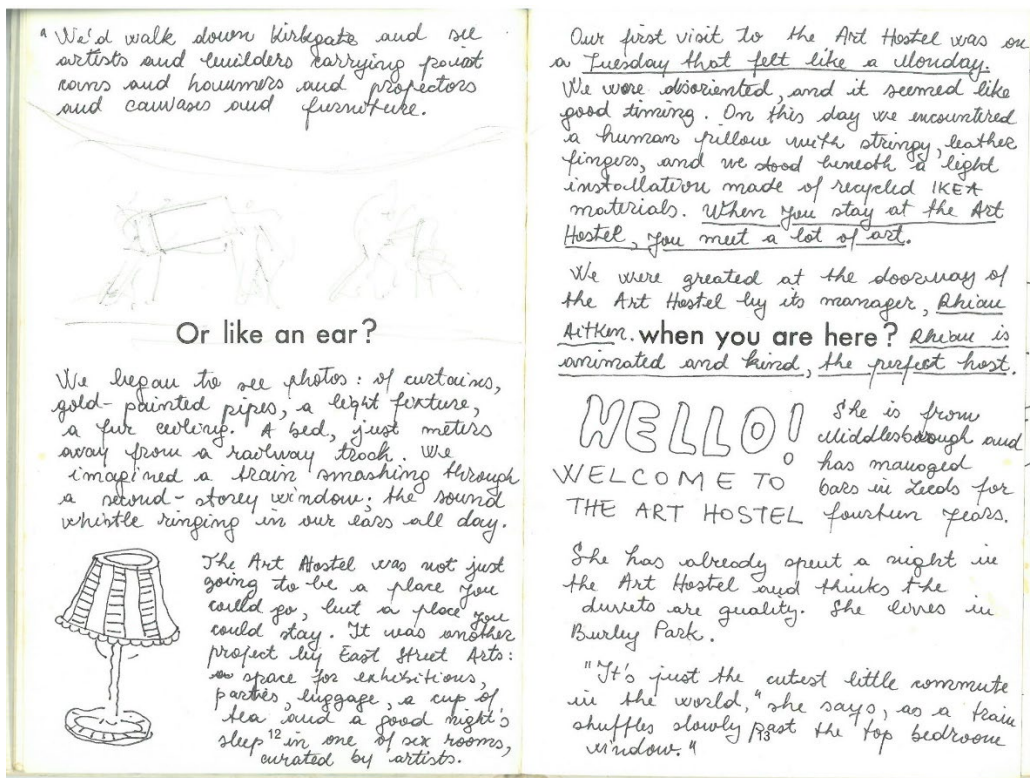 "We'd walk down Kirkgate and see
artists and builders carrying paint
cans and hammers and projectors
and canvases and furniture.
Or like an ear?
We began to see photos: of curtains,
gold-painted pipes, a light fixture,
a fur ceiling. A bed, just meters
away from a railway track. We
imagined a train smashing through
a second-storey window; the sound
whistle ringing in our ears all day.
The Art Hostel was not just
going to be a place you
could go, but a place you
could stay. It was another
project by East Street Arts:
a space for exhibitions,
parties, luggage, a cup of
tea and a good night's
sleep in one of six rooms,
curated by artists.
12
Our first visit to the Art Hostel was on
a Tuesday that felt like a Monday.
We were disoriented, and it seemed like
good timing. On this day we encountered
a human pillow with stringy, leather
fingers, and we stood beneath a light
installation made of recycled IKEA
materials. When you stay at the Art
Hostel, you meet a lot of art.
We were greated at the doorway of
the Art Hostel by its manager, Rhian
Aitken. when you are here? Rhian is
animated and kind, the perfect host.
HELLO!
WELCOME TO
THE ART HOSTEL
She is from
Middlesborough and
has managed
bars in Leeds for
fourteen years.
She has already spent a night in
the Art Hostel and thinks the
duvets are quality. She lives in
Burley Park.
"It's just the cutest little commute
in the world," she says, as a train
shuffles slowly past the top bedroom
window."
13